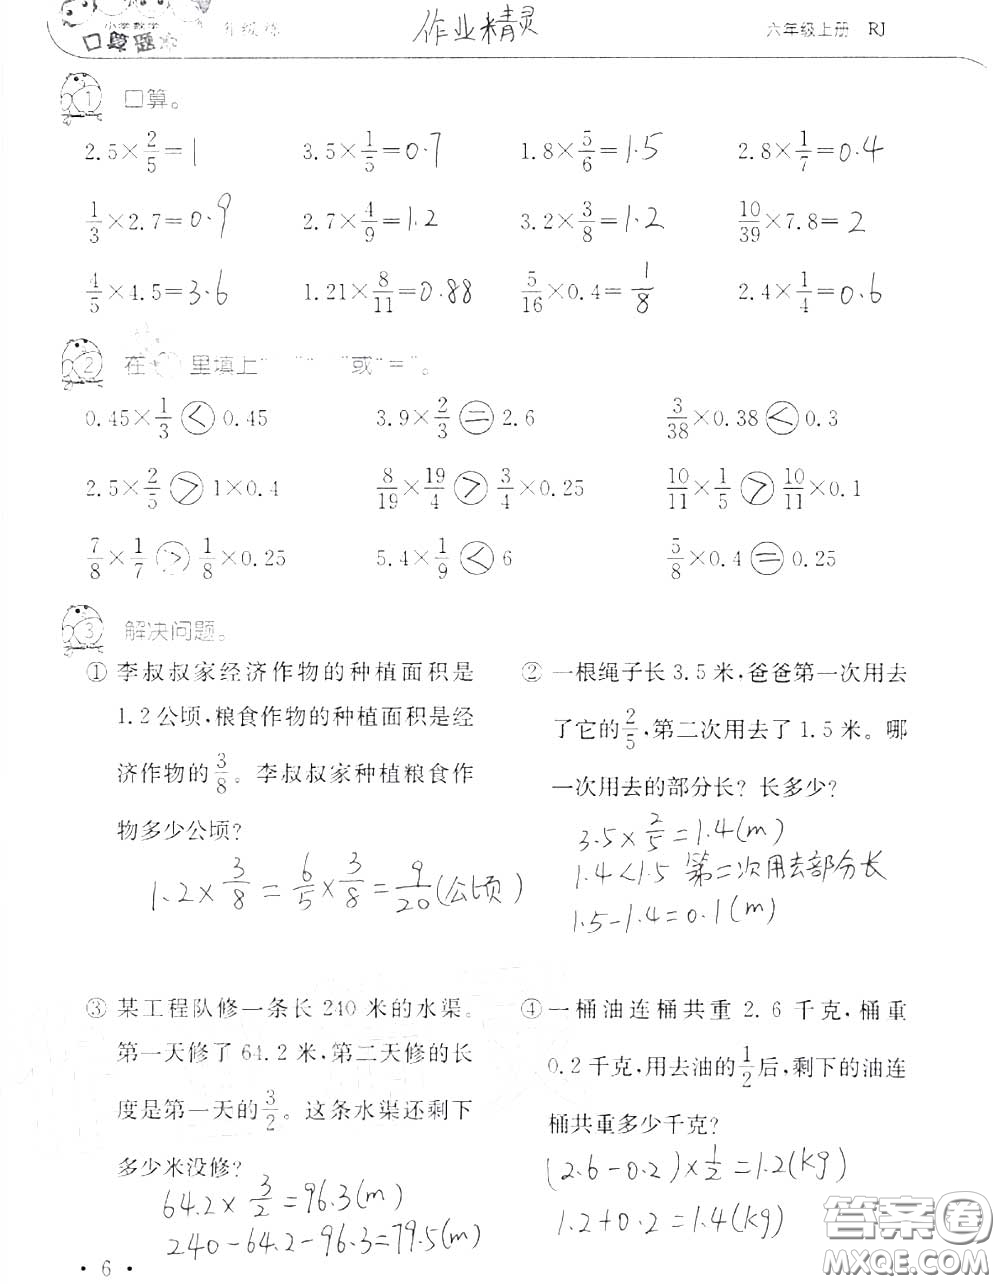 小学数学
口算题
作业精灵
六年级上册 RJ
1 口算。
2.5×2/5=1 3.5×1/5=0.7 1.8×5/6=1.5 2.8×1/7=0.4
1/3×2.7=0.9 2.7×4/9=1.2 3.2×3/8=1.2 10/39×7.8=2
4/5×4.5=3.6 1.21×8/11=0.88 5/16×0.4=1/8 2.4×1/4=0.6
2 在 里填上“ ”“ ”或“=”。
0.45×1/3<0.45 3.9×2/3=2.6 3/38×0.38<0.3
2.5×2/5>1×0.4 8/19×19/4>3/4×0.25 10/11×1/5>10/11×0.1
7/8×1/7>1/8×0.25 5.4×1/9<6 5/8×0.4=0.25
3 解决问题。
① 李叔叔家经济作物的种植面积是
1.2公顷,粮食作物的种植面积是经
济作物的3/8。李叔叔家种植粮食作
物多少公顷?
1.2×3/8=6/5×3/8=9/20(公顷)
② 一根绳子长3.5米,爸爸第一次用去
了它的2/5,第二次用去了1.5米。哪
一次用去的部分长?长多少?
3.5×2/5=1.4(m)
1.4<1.5 第二次用去部分长
1.5-1.4=0.1(m)
③ 某工程队修一条长240米的水渠。
第一天修了64.2米,第二天修的长
度是第一天的3/2。这条水渠还剩下
多少米没修?
64.2×3/2=96.3(m)
240-64.2-96.3=79.5(m)
④ 一桶油连桶共重2.6千克,桶重
0.2千克,用去油的1/2后,剩下的油连
桶共重多少千克?
(2.6-0.2)×1/2=1.2(kg)
1.2+0.2=1.4(kg)
答案圈
MXQE.COM
• 6 •